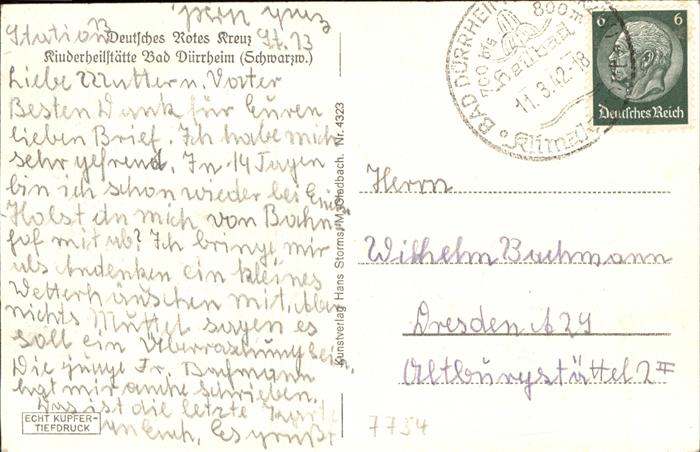 Station B
Deutsches Rotes Kreuz St. 13
Kinderheilstätte Bad Dürrheim (Schwarzw.)
Liebe Mutter u. Vater
Besten Dank für Euren
lieben Brief. Ich habe mich
sehr gefreud. In 14 Tagen
bin ich schon wieder bei Euch.
Holst du mich von Bahn-
hof mit ab? Ich bringe mir
als Andenken ein kleines
Wetterhäuschen mit, Aber
nichts Muttel sagen es
soll ein Überraschung sein.
Die junge Fr. Bachmann
hat mir auche schrieben.
Das ist die letzte Karte
an Euch, Es grüßt
ECHT KUPFER-
TIEFDRUCK
Kunstverlag Hans Storms, M. Gladbach. Nr. 4323
BAD DÜRRHEIM
700 bis 800 m
Heilbad
11.3.42-18
Klima
6 6
Deutsches Reich
Herrn
Wilhelm Bachmann
Dresden A 29
Altburgstättel 2 II
7734